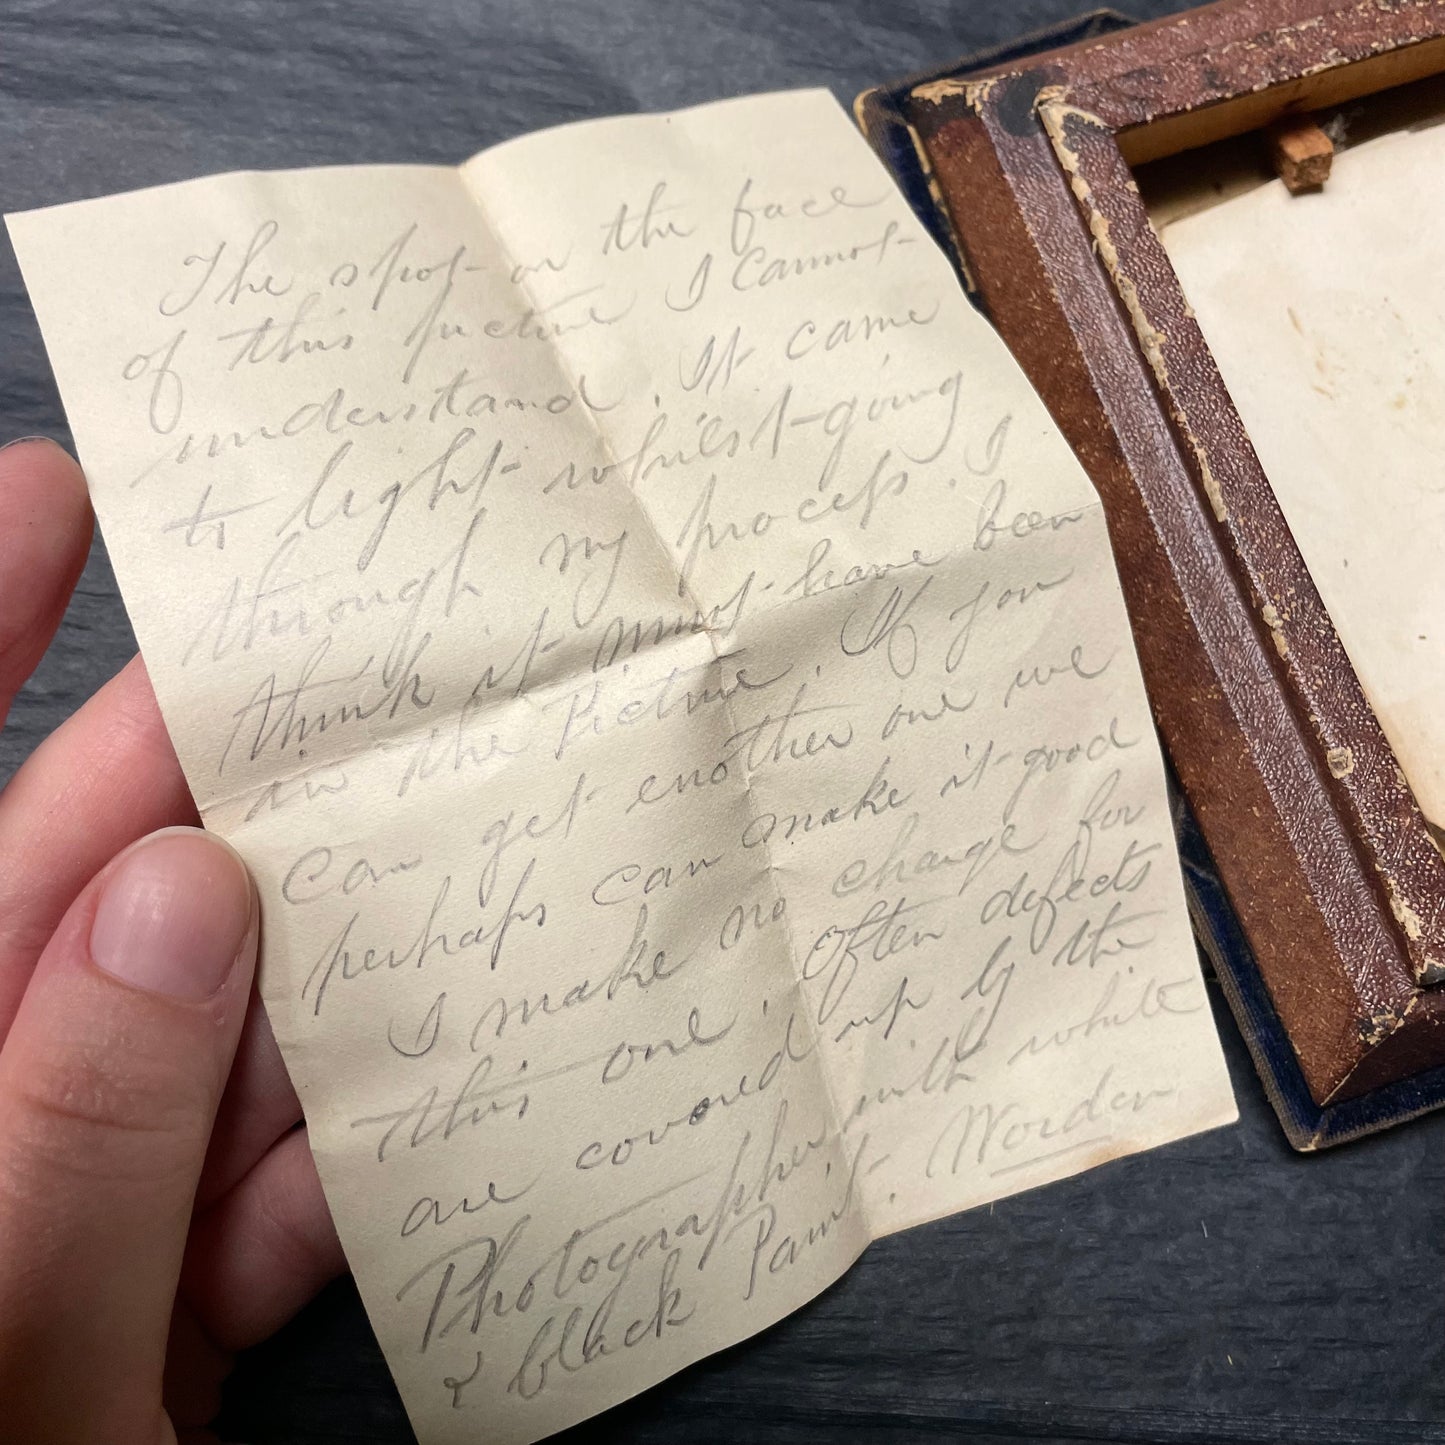 The spot on the face
of this picture I cannot
understand. It came
to light whilst going
through my process. I
think it must have been
in the Picture. If you
can get enother one we
perhaps can make it good
I make no change for
this one, often defects
are covored up by the
Photographer with white
& black Paint. Worden